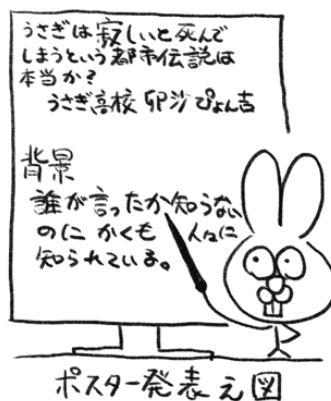 うさぎは寂しいと死んで
しまうという都市伝説は
本当か?
うさぎ高校 卯沙 ぴょん吉
背景
誰が言ったか知らない
のに かくも 人々に
知られている。
ポスター発表え図